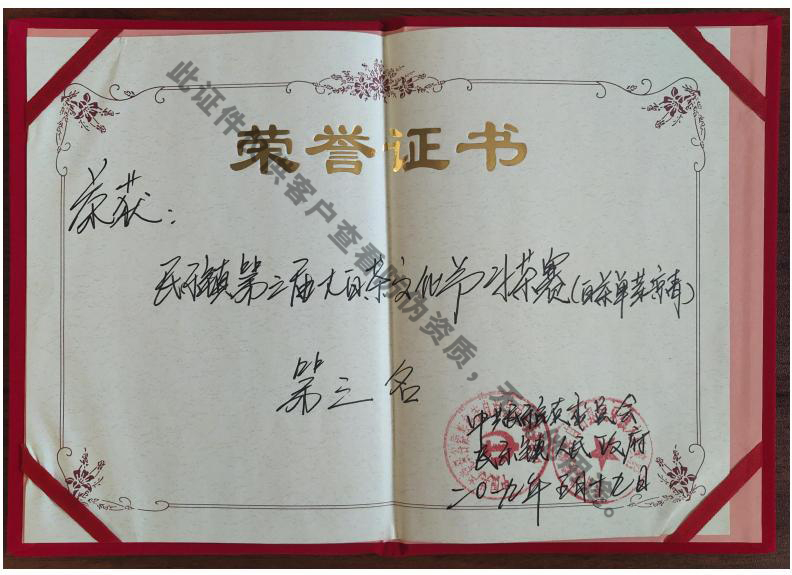 荣誉证书
荣获：
民乐镇第三届大白茶文化节斗茶赛(白茶单菜)
第三名
中共民乐镇委员会
民乐镇人民政府
二〇一九年五月十九日
此证件 供客户查看 防伪资质，